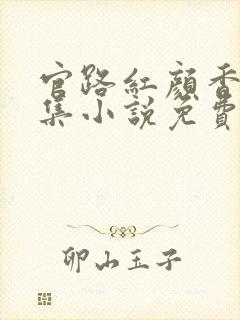 官路紅顏香
集小說免費
卯山玉子